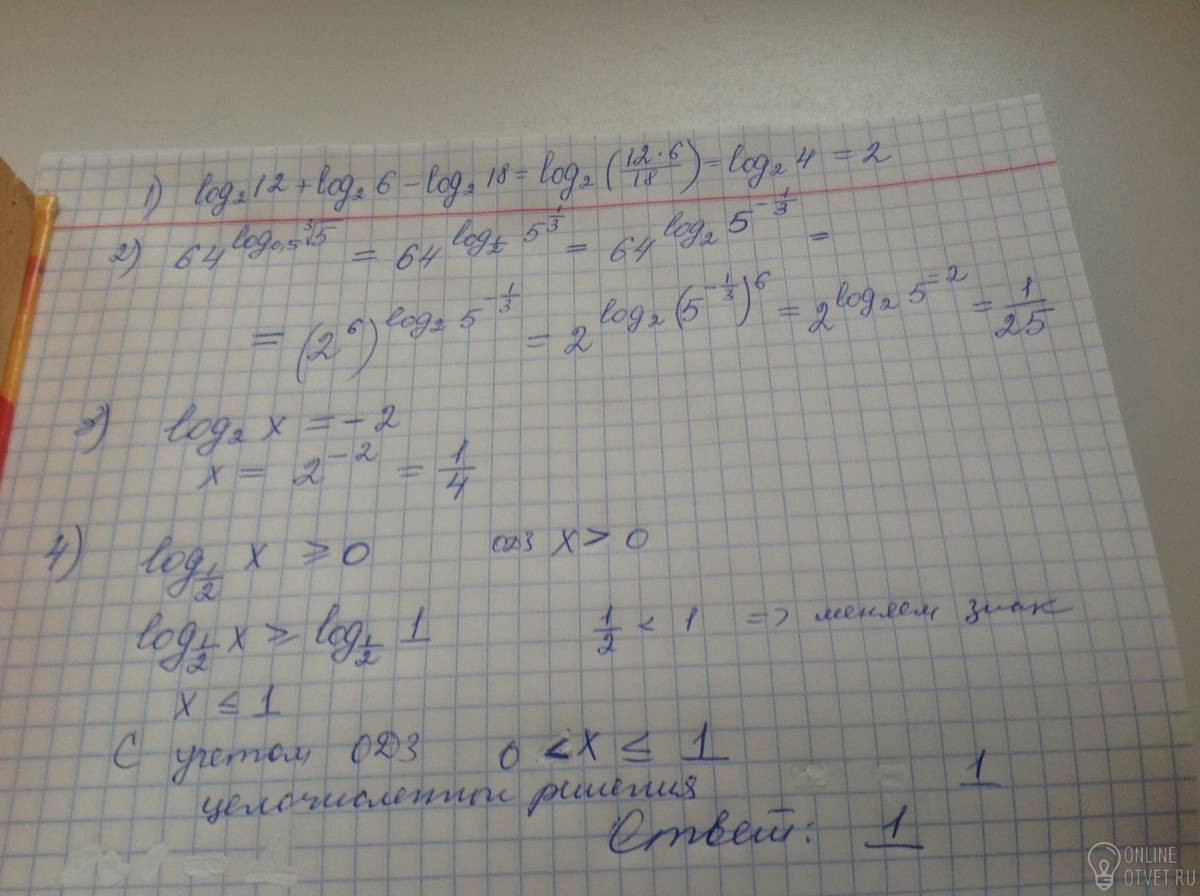 1) log₂12 + log₂6 - log₂18 = log₂(12·6/18) = log₂4 = 2
2) 64^(log₀,₅ ∛5) = 64^(log_(1/2) 5^(1/3)) = 64^(log₂ 5^(-1/3)) =
= (2⁶)^(log₂ 5^(-1/3)) = 2^(log₂ (5^(-1/3))⁶) = 2^(log₂ 5⁻²) = 1/25
3) log₂ x = -2
x = 2⁻² = 1/4
4) log_(1/2) x ≥ 0 ОДЗ x > 0
log_(1/2) x ≥ log_(1/2) 1 1/2 < 1 => меняем знак
x ≤ 1
С учетом ОДЗ 0 < x ≤ 1
целочисленные решения 1
Ответ: 1
ONLINE
OTVET.RU